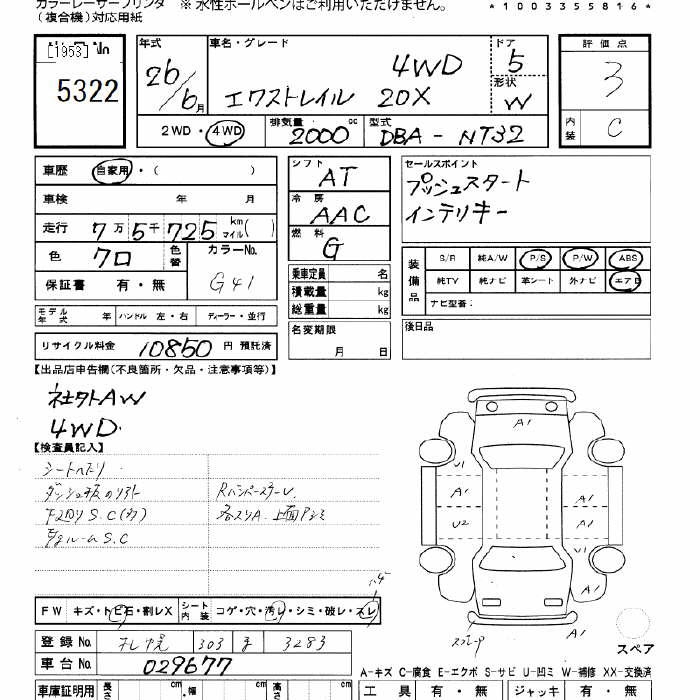 カラーレーザープリンタ ※ 水性ボールペンはご利用いただけません。
（複合機）対応用紙 *1003355816*
[1953]
5322
年式 26/6月
車名・グレード エクストレイル 20X 4WD
ドア 5
形状 W
2WD・4WD 排気量 2000 cc 型式 DBA-NT32
評価点 3
内装 C
車歴 自家用・( )
車検 年 月
走行 7万5千725 km マイル( )
色 クロ 色替 カラーNo. G41
保証書 有・無
シフト AT
冷房 AAC
燃料 G
乗車定員 名
積載量 kg
総重量 kg
セールスポイント
プッシュスタート
インテリキー
装備品 S/R 純A/W P/S P/W ABS
純TV 純ナビ 革シート 外ナビ エアB
ナビ型番:
モデル年式 年 ハンドル 左・右 ディーラー・並行
名変期限 月 日
後日品
リサイクル料金 10850 円 預託済
【出品店申告欄(不良箇所・欠品・注意事項等)】
社外AW
4WD
【検査員記入】
シートヘタリ
ダッシュ板のリフト Rバンパースリレ
下廻りS.C(力)
ルームS.C
A1
U1
A1 A1
U2 A1
A1
スプレープ
FW キズ・トビ石・割レX シート内装 コゲ・穴・汚レ・シミ・破レ・スレ
登録No. 札幌 303 3283
車台No. 029677
スペア
A-キズ C-腐食 E-エクボ S-サビ U-凹ミ W-補修 XX-交換済
車庫証明用 長さ cm ・幅 cm 高さ cm 工具 有・無 ジャッキ 有・無